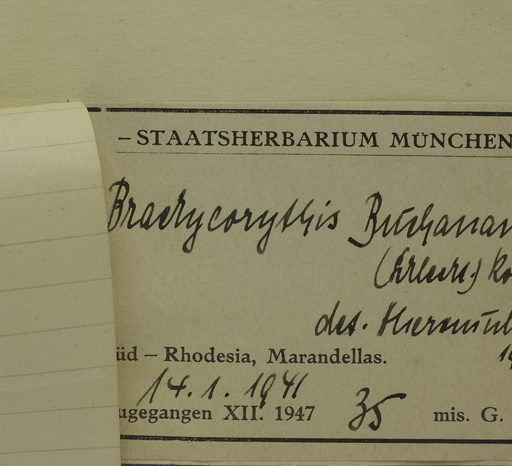 – STAATSHERBARIUM MÜNCHEN
Brachycorythis Buchanan
(Schltr.) Ro
det.
üd – Rhodesia, Marandellas. 19
14. 1. 1941
ugegangen XII. 1947 35 mis. G.